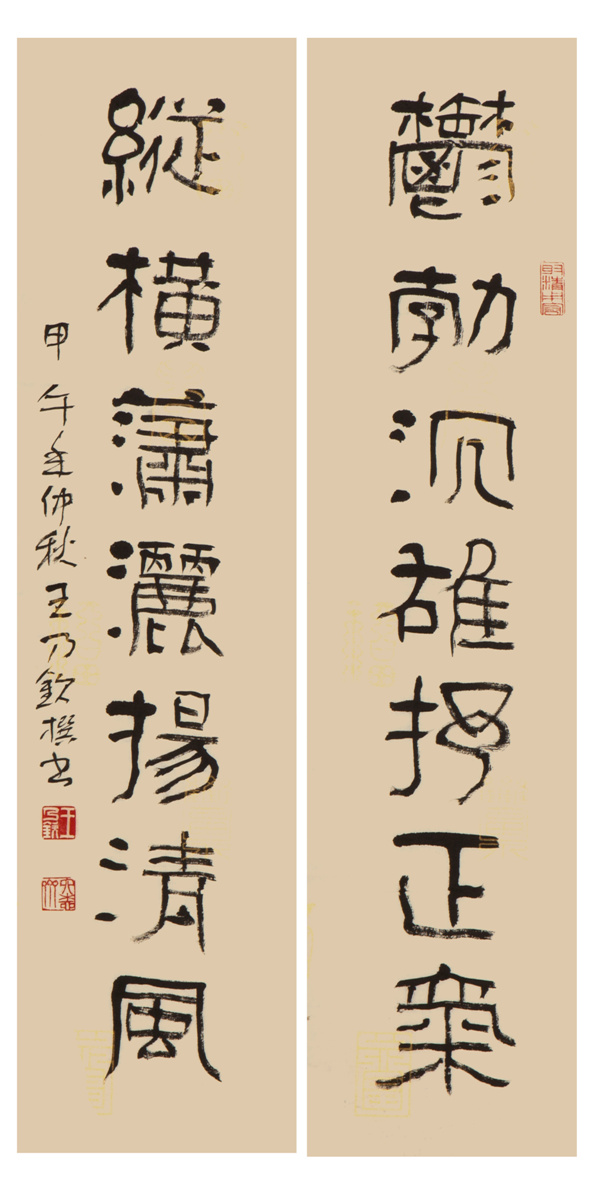 鬱勃沉雄抒正氣
縱橫瀟灑揚清風
甲午年仲秋王乃欽撰书
王乃欽